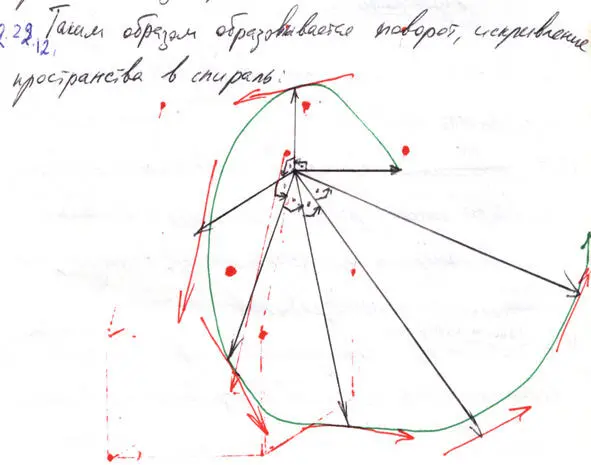 2.29.12. Таким образом образовывается поворот, искривление
пространства в спираль: